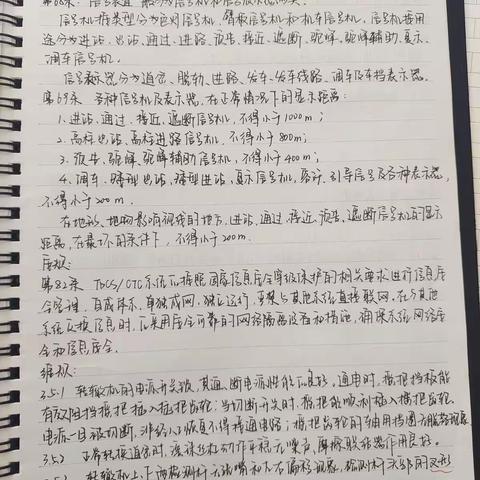 信号机按类型分为色灯信号机、臂板信号机和机车信号机。信号机按用
途分为进站、出站、通过、进路、预告、接近、遮断、驼峰、驼峰辅助、复示、
调车信号机。
信号表示器分为道岔、脱轨、进路、发车、发车线路、调车及车挡表示器。
第69条 各种信号机及表示器,在正常情况下的显示距离:
1. 进站、通过、接近、遮断信号机,不得小于1000m;
2. 高柱出站、高柱进路信号机,不得小于800m;
3. 预告、驼峰、驼峰辅助信号机,不得小于400m;
4. 调车、矮型出站、矮型进站、复示信号机,容许、引导信号及各种表示器,
不得小于200m.
在地形、地物影响视线的地方,进站、通过、接近、预告、遮断信号机的显示
距离,在最坏的条件下,不得小于200m.
第82条 TDCS/CTC系统应按照国家信息安全等级保护的相关要求进行信息安
全管理,自成体系、单独成网、独立运行,严禁与其他系统直接联网。在与其他
系统交换信息时,应采用安全可靠的网络隔离设备和措施,确保系统网络安
全和信息安全。
维规:
3.5.1 转辙机的电源开关板,其通、断电源性能应良好。通电时,摇把挡板能
有效阻挡摇把插入摇把齿轮;当切断开关时,摇把能顺利插入摇把齿轮,
电源一旦被切断,非经人工恢复不得接通电路;摇把齿轮的轴用挡圈
3.5.2 正常转换道岔时,减速器动作平稳无噪声,摩擦联接器作用良好。
转辙机上下两检测杆无张嘴和左右偏移现象,检测杆头部的叉形